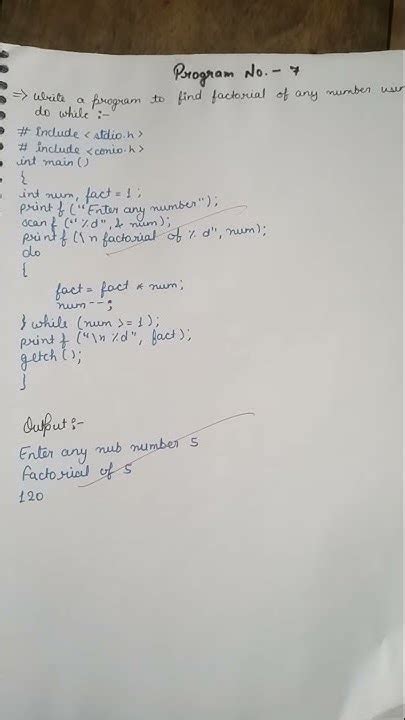 Program No. - 7
=> Write a program to find factorial of any number usin
do while :-
# Include <stdio.h>
# include <conio.h>
int main()
{
int num, fact = 1;
printf ("Enter any number");
scanf ("%d", & num);
printf (\n factorial of % d", num);
do
{
fact = fact * num;
num--;
} while (num >= 1);
printf ("\n %d", fact);
getch ();
}
Output :-
Enter any nub number 5
factorial of 5
120